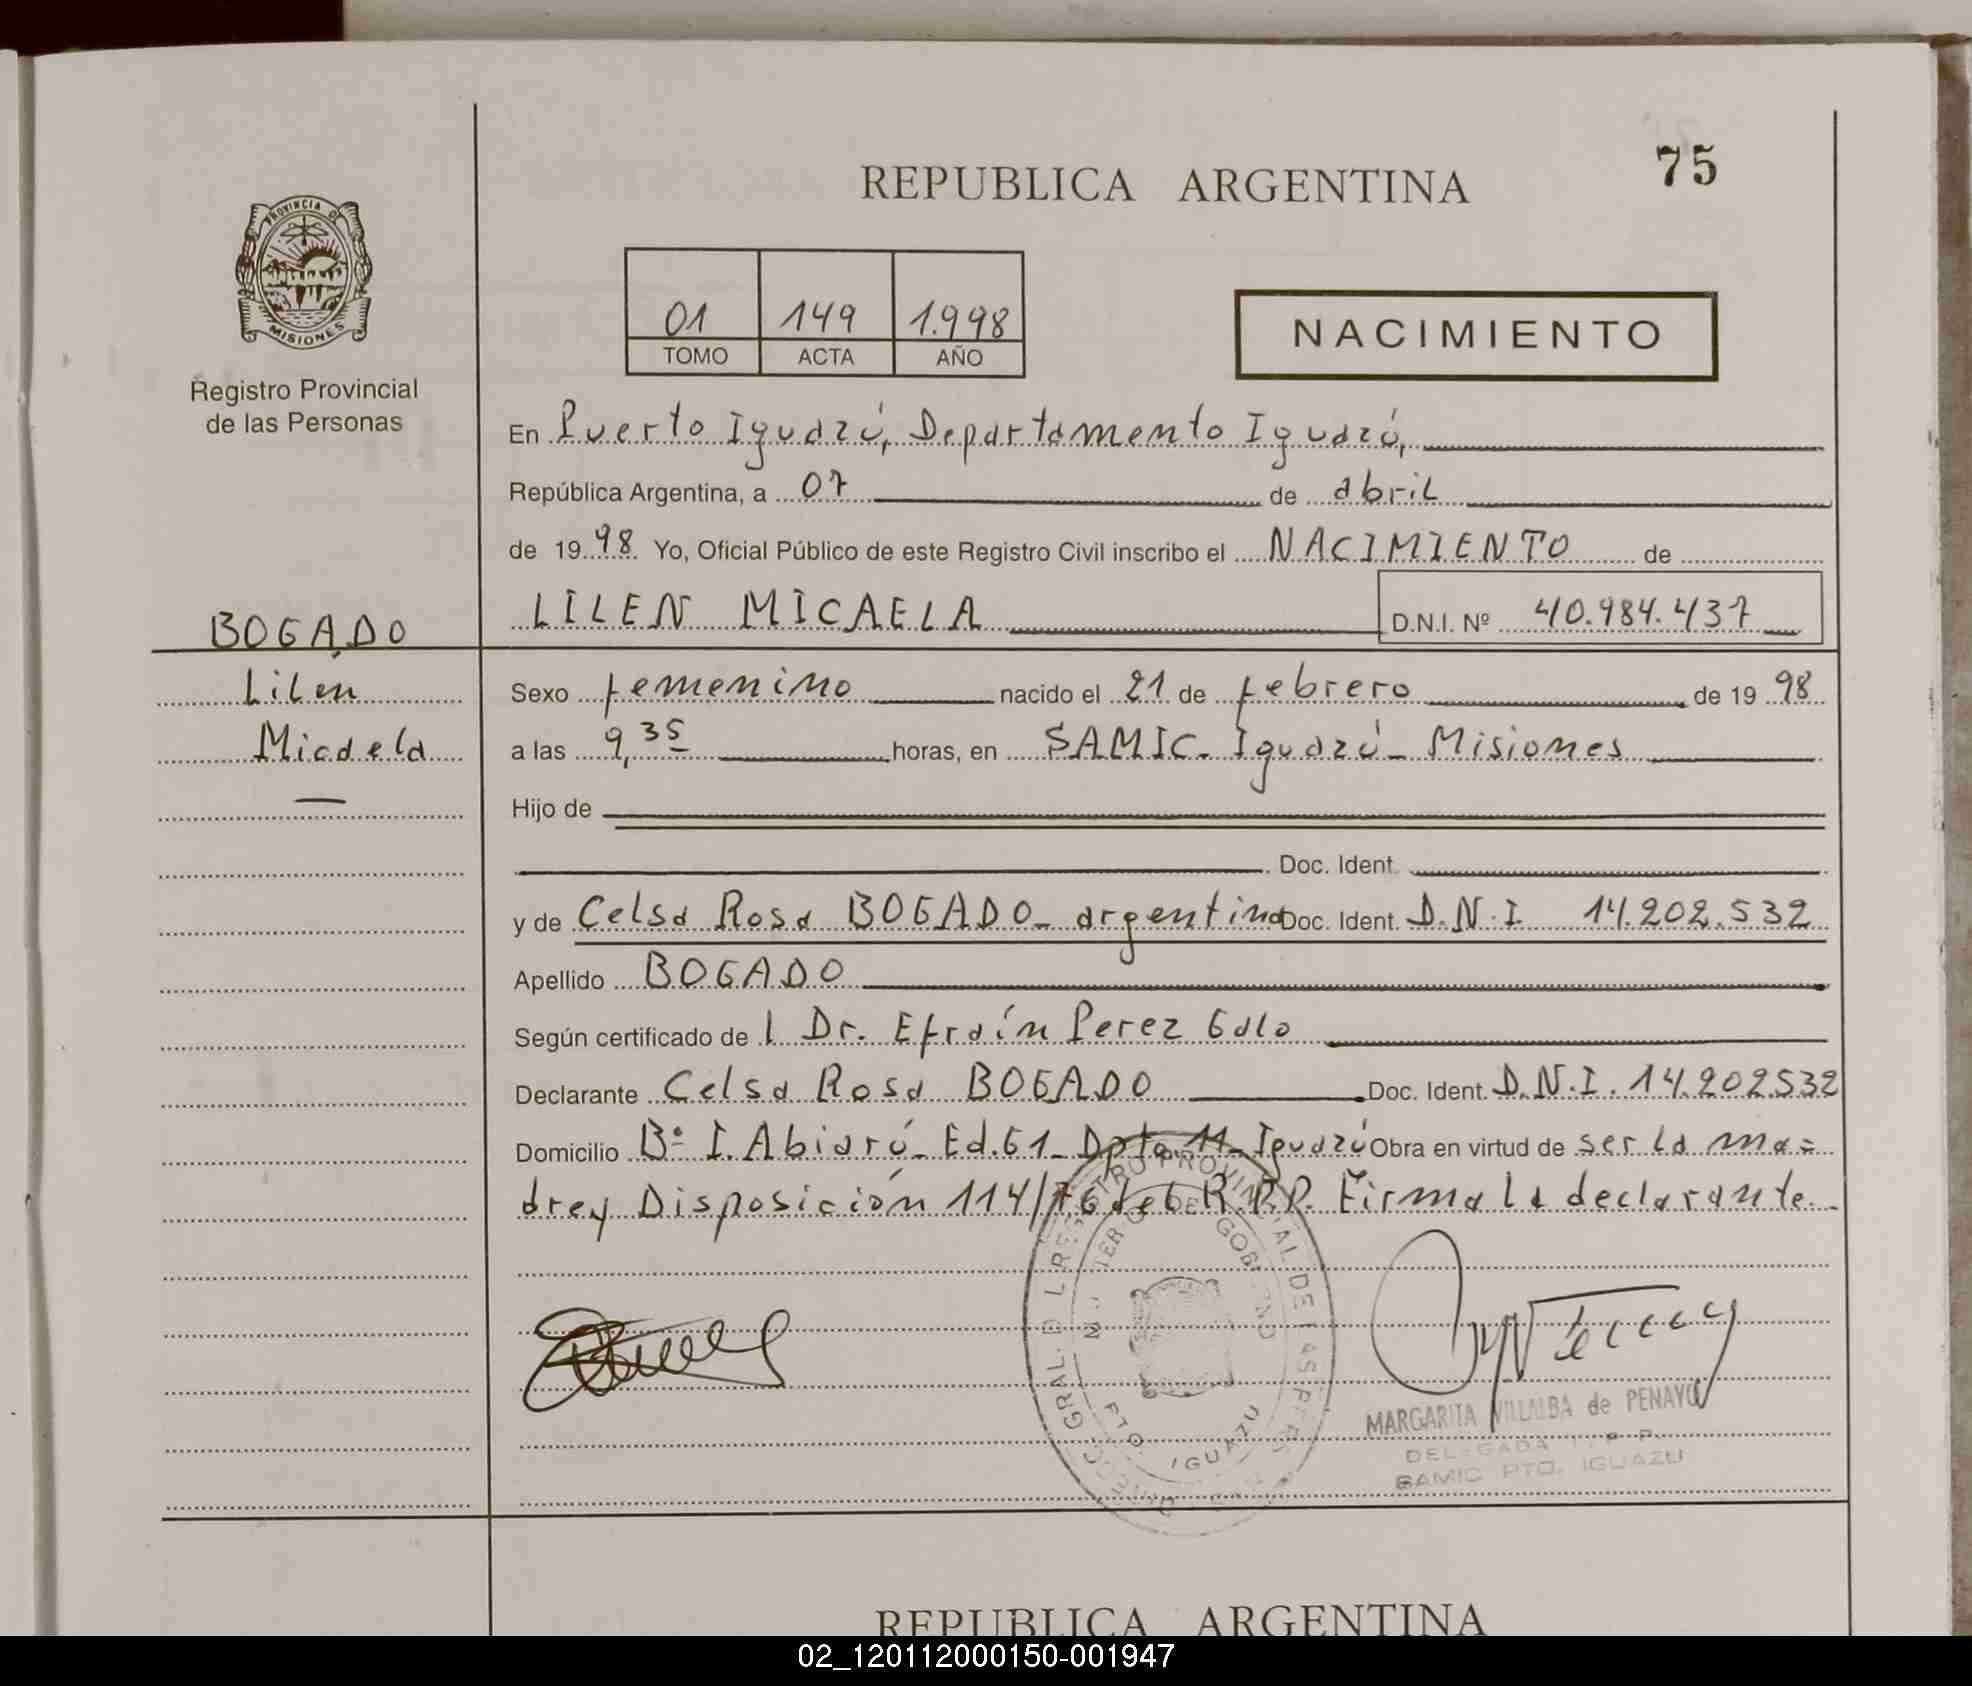 75
REPUBLICA ARGENTINA
PROVINCIA D
MISIONES
Registro Provincial
de las Personas
01 149 1.998
TOMO ACTA AÑO
NACIMIENTO
En Puerto Iguazú, Departamento Iguazú,
República Argentina, a 07 de abril
de 19 98 Yo, Oficial Público de este Registro Civil inscribo el NACIMIENTO de
BOGADO
LILEN MICAELA D.N.I. Nº 40.984.437
Lilén
Sexo femenino nacido el 21 de febrero de 19 98
Micaela
a las 9,35 horas, en SAMIC - Iguazú - Misiones
Hijo de
Doc. Ident.
y de Celsa Rosa BOGADO - argentina Doc. Ident. D.N.I. 14.202.532
Apellido BOGADO
Según certificado de l Dr. Efraín Perez Galo
Declarante Celsa Rosa BOGADO Doc. Ident. D.N.I. 14.202.532
Domicilio Bº I. Abiarú - Ed. 61 - Dpto. 11 - Iguazú Obra en virtud de ser la ma=
dre y Disposición 114/76 del R.P.P. Firma la declarante.
MARGARITA VILLALBA de PENAYO
DELEGADA
SAMIC PTO. IGUAZU
REPUBLICA ARGENTINA
02_120112000150-001947